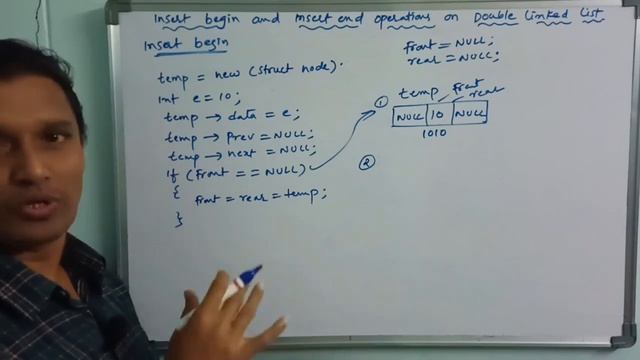 Insert begin and Insert end operations on Double Linked List
Insert begin
temp = new (struct node).
Int e=10;
temp → data = e;
temp → prev = NULL;
temp → next = NULL;
if (front == NULL)
{
front = rear = temp;
}
front = NULL;
rear = NULL;
① temp front rear
NULL 10 NULL
1010
②